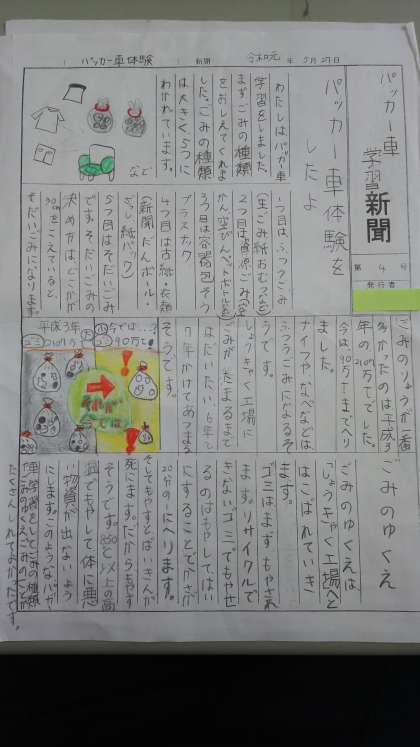 パッカー車体験 新聞 令和元年5月27日
パッカー車
学習新聞
第4号
発行者
パッカー車体験を
したよ
わたしはパッカー車
学習をしました。
まず、ごみの種類
をおしえてくれま
した。ごみの種類
は大きく5つに
わかれています。
など
1つ目は、ふつうごみ
(生ごみ紙おむつなど)
2つ目は資源ごみ
かん空びんペットボトルなど
3つ目は容器包そう
プラスチック
4つ目は古紙・衣類
(新聞だんボール・
ざっし、紙パック)
5つ目はそだいごみ
です。そだいごみの
決め方は、どこかが
をこえていると、
そだいごみになります。
ごみのりょうが一番
多かったのは平成3
年の210万tでした。
今は90万tまでへり
ました。
ナイフやなべなどは
ふつうごみになるそ
うです。
しょうきゃく工場に
ごみがたまるまで
はだいたい、6年と
7年かけてあつまる
そうです。
平成3年
ゴミ210万t
今では…?
90万t
それが
今では
ごみのゆくえ
ごみのゆくえは
「しょうきゃく工場」へと
はこばれていき
ます。
ゴミはまずもやされ
ます。リサイクルで
きないゴミでもやせ
るのはもやしてはい
にすることでかさが
20分の1にへります。
そしてもやすとばいきんが
死にます。だからもやす
そうです。850℃以上の高
温でもやして体に悪
い物質が出ないよう
にします。このようなパッカー
車学習をしてごみの種類
ごみのゆくえごみのことが
たくさんしれてよかったです。